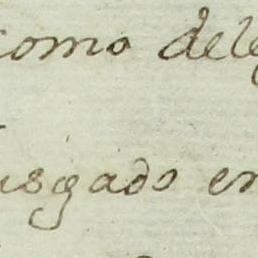 como dele
usgado en